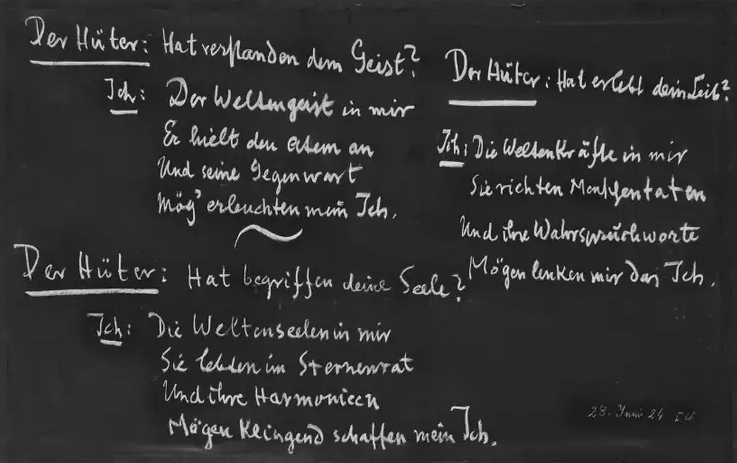 Der Hüter: Hat verstanden dein Geist?
Ich: Der Weltengeist in mir
Er hielt den Atem an
Und seine Gegenwart
Mög' erleuchten mein Ich.
Der Hüter: Hat begriffen deine Seele?
Ich: Die Weltenseelen in mir
Sie lebten im Sternenrat
Und ihre Harmonieen
Mögen klingend schaffen mein Ich.
Der Hüter: Hat erlebt dein Leib?
Ich: Die Weltenkräfte in mir
Sie richten Menschentaten
Und ihre Wahrspruchworte
Mögen lenken mir das Ich.
28. Juni 24